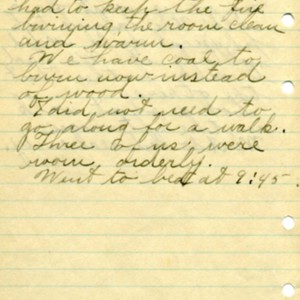 had to keep the fire
burning, the room clean
and warm.
We have coal to
burn now instead
of wood.
I did not need to
go along for a walk.
Three of us were
room orderly.
Went to bed at 9:45.